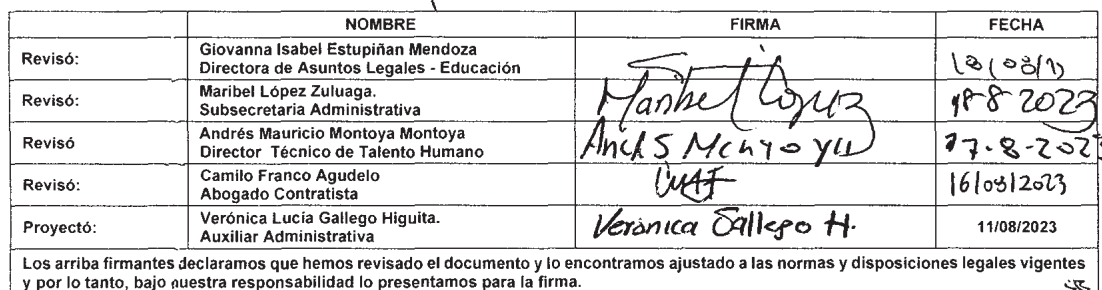 NOMBRE FIRMA FECHA
Revisó: Giovanna Isabel Estupiñan Mendoza
Directora de Asuntos Legales - Educación
Revisó: Maribel López Zuluaga.
Subsecretaria Administrativa Maribel López 18-8 2023
Revisó Andrés Mauricio Montoya Montoya
Director Técnico de Talento Humano Andrés Montoya 17-8-2023
Revisó: Camilo Franco Agudelo
Abogado Contratista 16/08/2023
Proyectó: Verónica Lucía Gallego Higuita.
Auxiliar Administrativa Verónica Gallego H. 11/08/2023
Los arriba firmantes declaramos que hemos revisado el documento y lo encontramos ajustado a las normas y disposiciones legales vigentes
y por lo tanto, bajo nuestra responsabilidad lo presentamos para la firma.